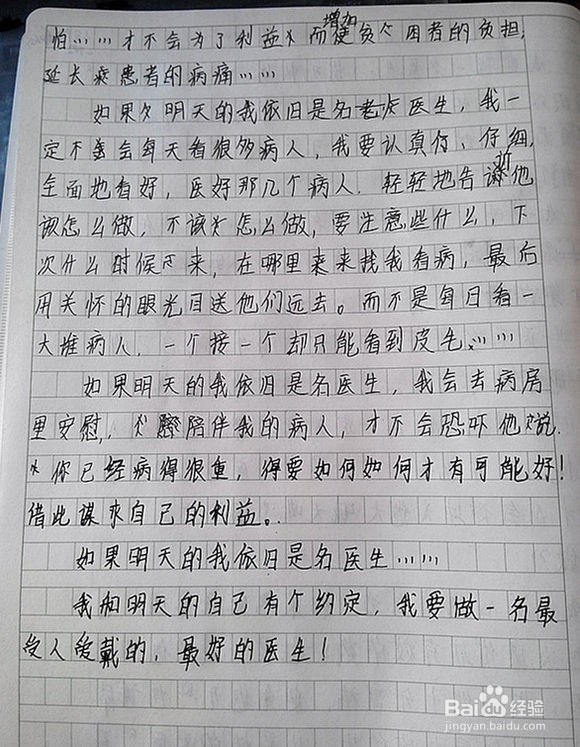 怕……才不会为了利益而增加使贫个困者的负担,
延长疾患者的病痛……
如果明天的我依旧是名老医生,我一
定不会每天看很多病人,我要认真仔、仔细、
全面地看好,医好那几个病人.轻轻地告诉他
该怎么做,不该怎么做,要注意些什么,下
次什么时候来,在哪里来来找我看病,最后
用关怀的眼光目送他们远去。而不是每日看一
大堆病人.一个接一个却只能看到皮毛……
如果明天的我依旧是名医生,我会去病房
里安慰,陪伴我的病人,才不会恐吓他说.
你已经病得很重,得要如何如何才有可能好!
借此谋来自己的利益。
如果明天的我依旧是名医生……
我和明天的自己有个约定,我要做一名最
受人爱戴的,最好的医生!
Baidu经验
jingyan.baidu.com